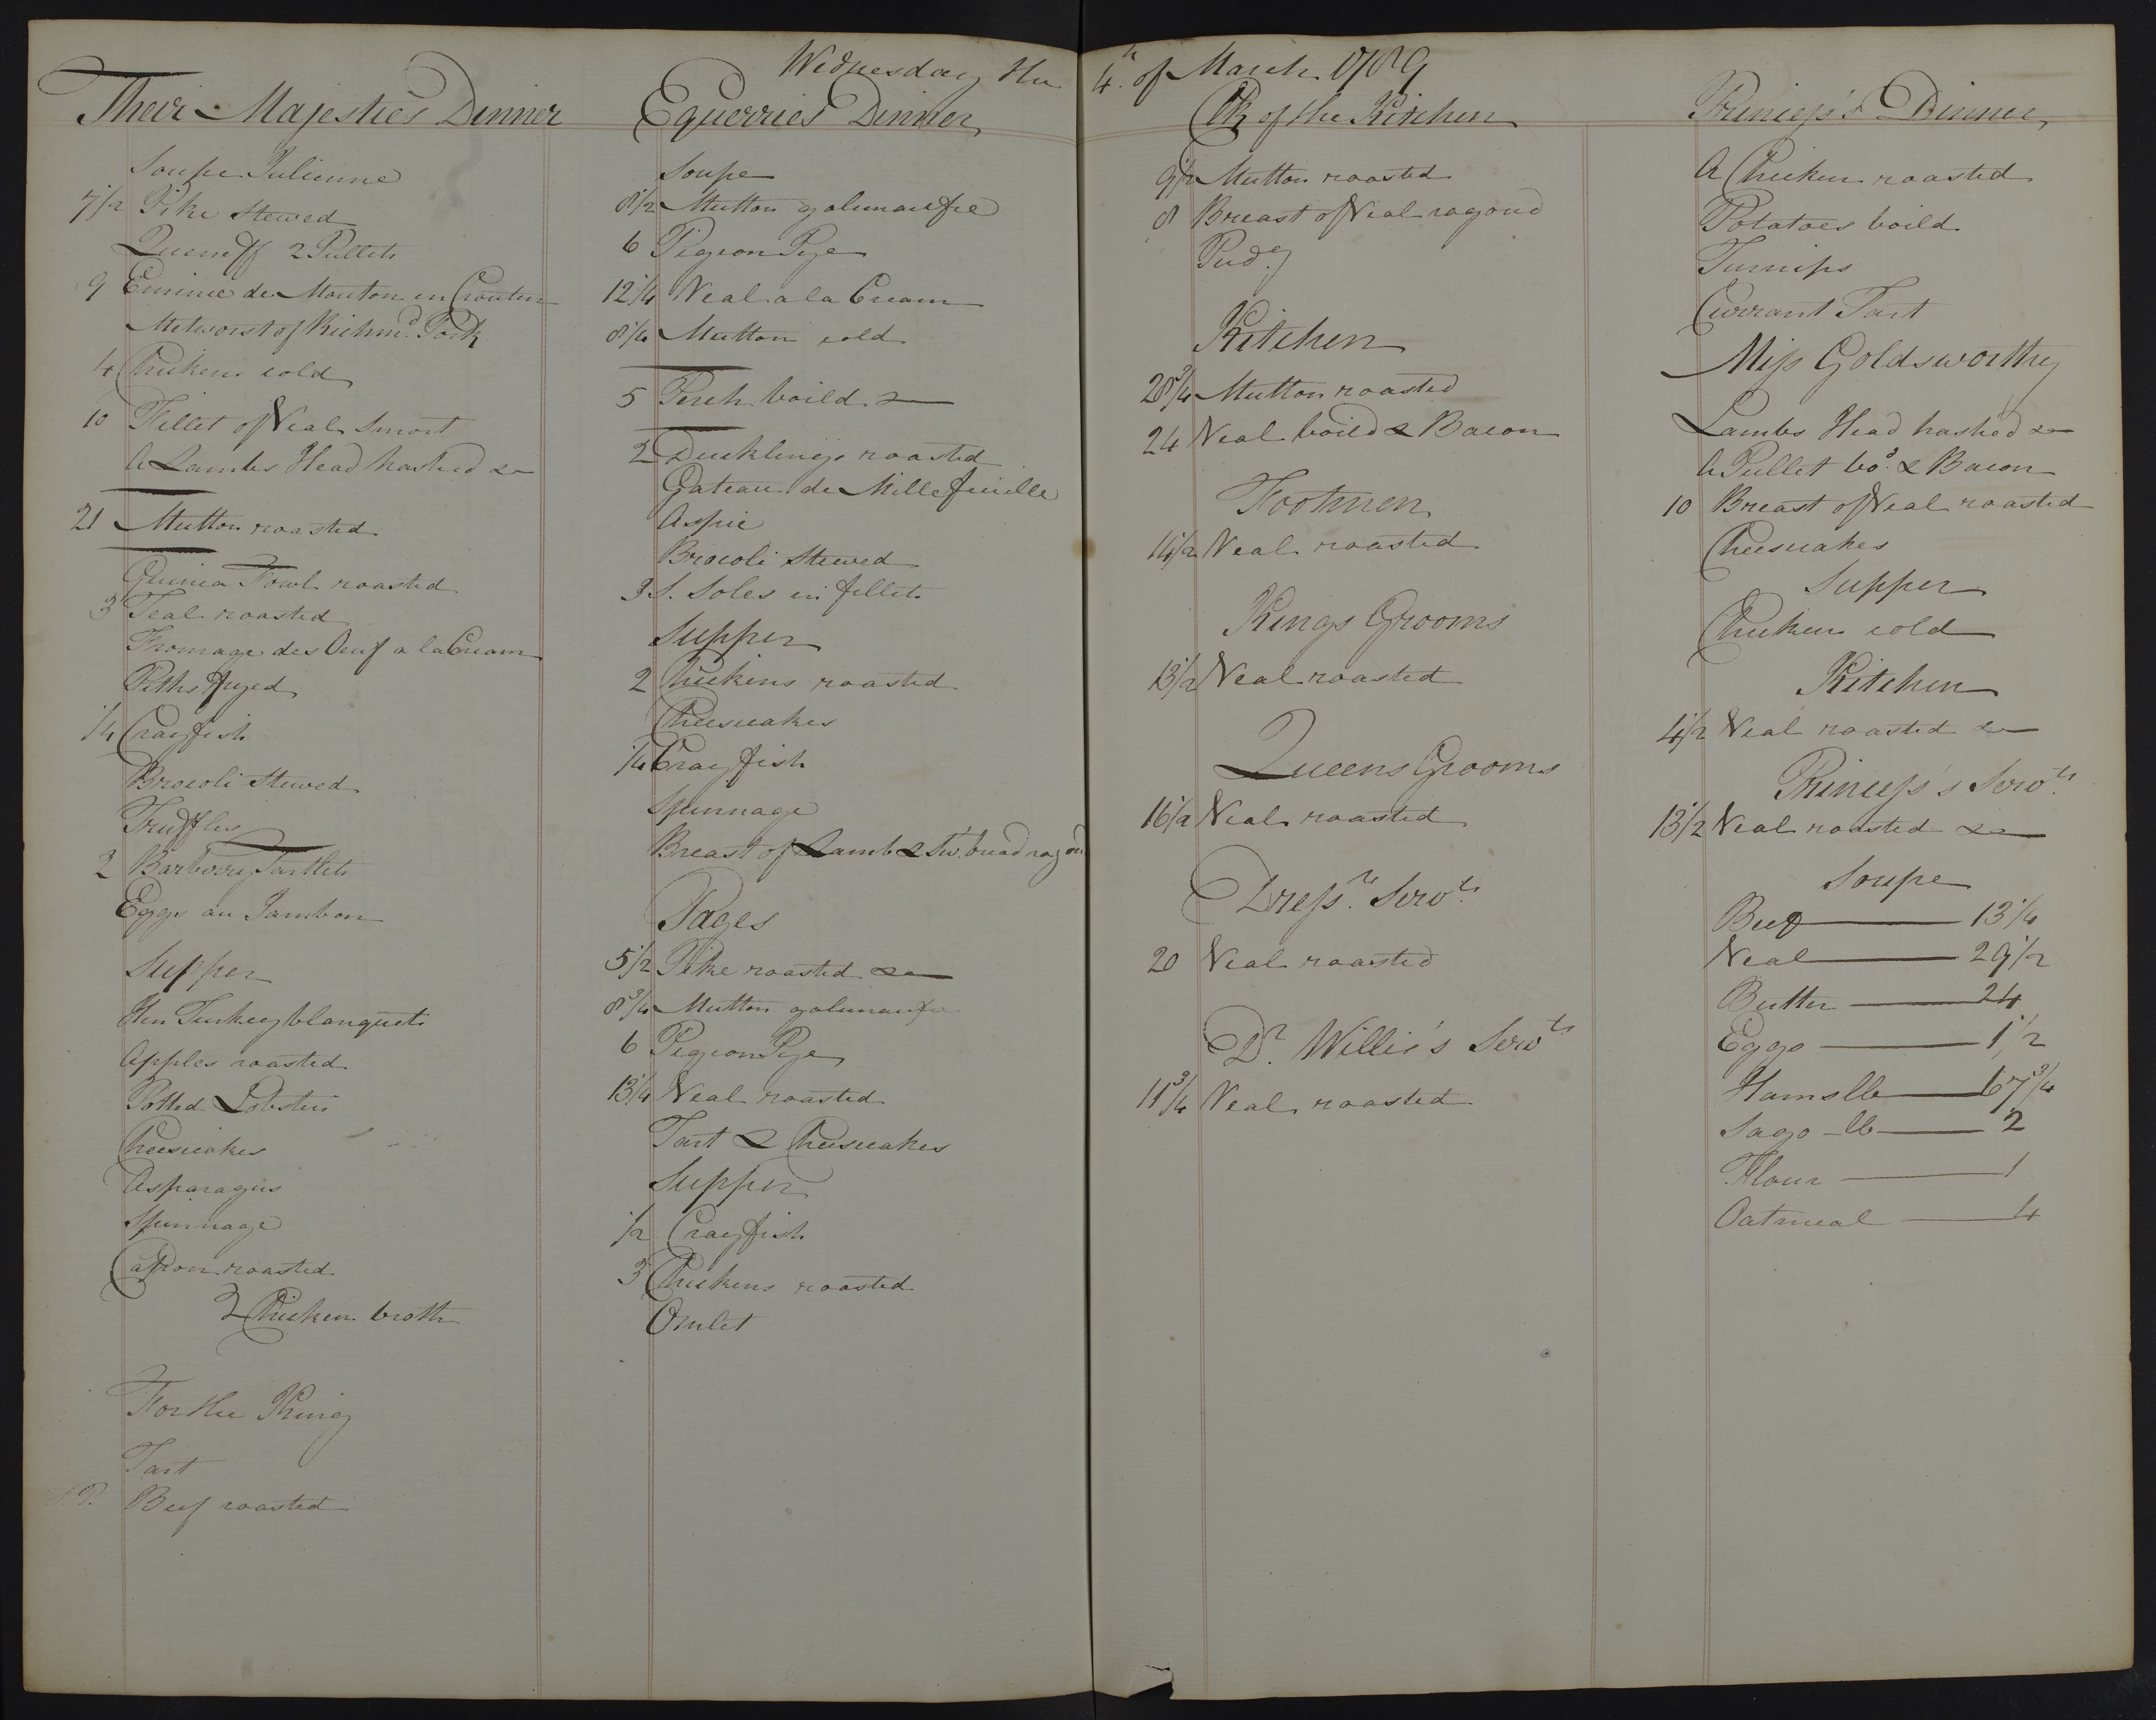 Wednesday the 4.th of March 1789
Their Majesties Dinner
Soupe Julienne
7 1/2 Pike Stewed
2 Pullets
9 Emince de Mouton en Crouten
Metworst of Richm.d Pork
4 Chickens cold
10 Fillet of Veal Smort
A Lambs Head hashed &
21 Mutton roasted
Guinea Fowl roasted
3 Teal roasted
Fromage des Oeuf a la Cream
Piths fryed
1/4 Crayfish
Brocoli Stewed
Truffles
2 Barberry Tartlets
Eggs au Jambon
Supper
Hen Turkey blanquets
Apples roasted
Potted Lobsters
Cheescakes
Asparagus
Spinnage
Capon roasted
2 Chicken broth
For the King
Tart
Beef roasted
Equerries Dinner
Soupe
8 1/2 Mutton galimaufre
6 Pigeon Pye
12 1/4 Veal a la Cream
8 1/4 Mutton cold
5 Perch boild &
2 Ducklings roasted
Gateau de Millefeuille
Aspic
Brocoli Stewed
3 S. Soles in fillets
Supper
2 Chickins roasted
Cheescakes
1/4 Crayfish
Spinnage
Breast of Lamb & Sw.t bread ragou
Pages
5 1/2 Pike roasted &
8 3/4 Mutton galimaufre
6 Pigeon Pye
13 1/4 Veal roasted
Tart & Cheescakes
Supper
1/2 Crayfish
3 Chickens roasted
Omlet
Clk of the Kitchen
9 1/2 Mutton roasted
8 Breast of Veal ragoud
Pud.g
Kitchen
28 3/4 Mutton roasted
24 Veal boild & Bacon
Footmen
14 1/2 Veal roasted
Kings Grooms
13 1/2 Veal roasted
Queens Grooms
16 1/2 Veal roasted
Dress.rs Serv.ts
20 Veal roasted
D.r Willis's Serv.ts
11 3/4 Veal roasted
Princess's Dinner
A Chicken roasted
Potatoes boild
Turnips
Currant Tart
Miss Goldsworthy
Lambs Head hashed &
A Pullet bo.d & Bacon
10 Breast of Veal roasted
Cheescakes
Supper
Chicken cold
Kitchen
4 1/2 Veal roasted &
Princess's Serv.ts
13 1/2 Veal roasted &
Soupe
Beef 13 1/4
Veal 29 1/2
Butter 24
Eggs 1 1/2
Hams lb 67 3/4
Sago lb 2
Flour 1
Oatmeal 4